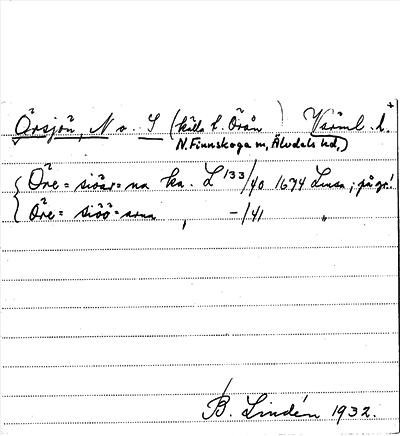 Örsjön, N o. S (källa t. Örån) Värml. l.
N. Finnskoga sn, Älvdals hd,)
{ Öre=siöar=na ka. L 133/40 1674 Lmsa; på gr!
Öre=siöö=arna, -/41 "
B. Lindén 1932.